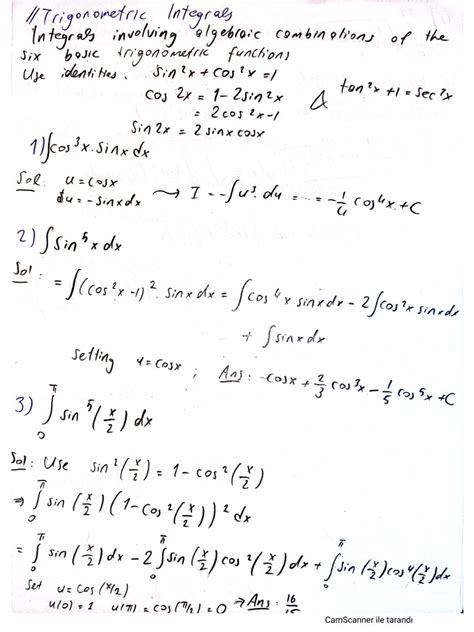 //Trigonometric Integrals
Integrals involving algebraic combinations of the
six basic trigonometric functions
Use identities. sin²x + cos²x = 1
cos 2x = 1-2sin²x & tan²x + 1 = sec²x
= 2cos²x-1
sin2x = 2sinx cosx
1) ∫cos³x.sinx dx
Sol: u = cosx
du = -sinxdx ⇝ I = -∫u³.du = ... = -1/4 cos⁴x + C
2) ∫sin⁵x dx
Sol: = ∫(cos²x-1)².sinx dx = ∫cos⁴x sinx dx - 2∫cos²x sinx dx
+ ∫sinx dx
setting u = cosx ; Ans: -cosx + 2/3 cos³x - 1/5 cos⁵x + C
3) ∫₀^π sin⁵(x/2) dx
Sol: Use sin²(x/2) = 1-cos²(x/2)
⇒ ∫₀^π sin(x/2)(1-cos²(x/2))² dx
= ∫₀^π sin(x/2)dx - 2∫₀^π sin(x/2)cos²(x/2)dx + ∫₀^π sin(x/2)cos⁴(x/2)dx
Set u = cos(x/2)
u(0) = 1 u(π) = cos(π/2) = 0 ⇒ Ans: 16
CamScanner ile tarandı